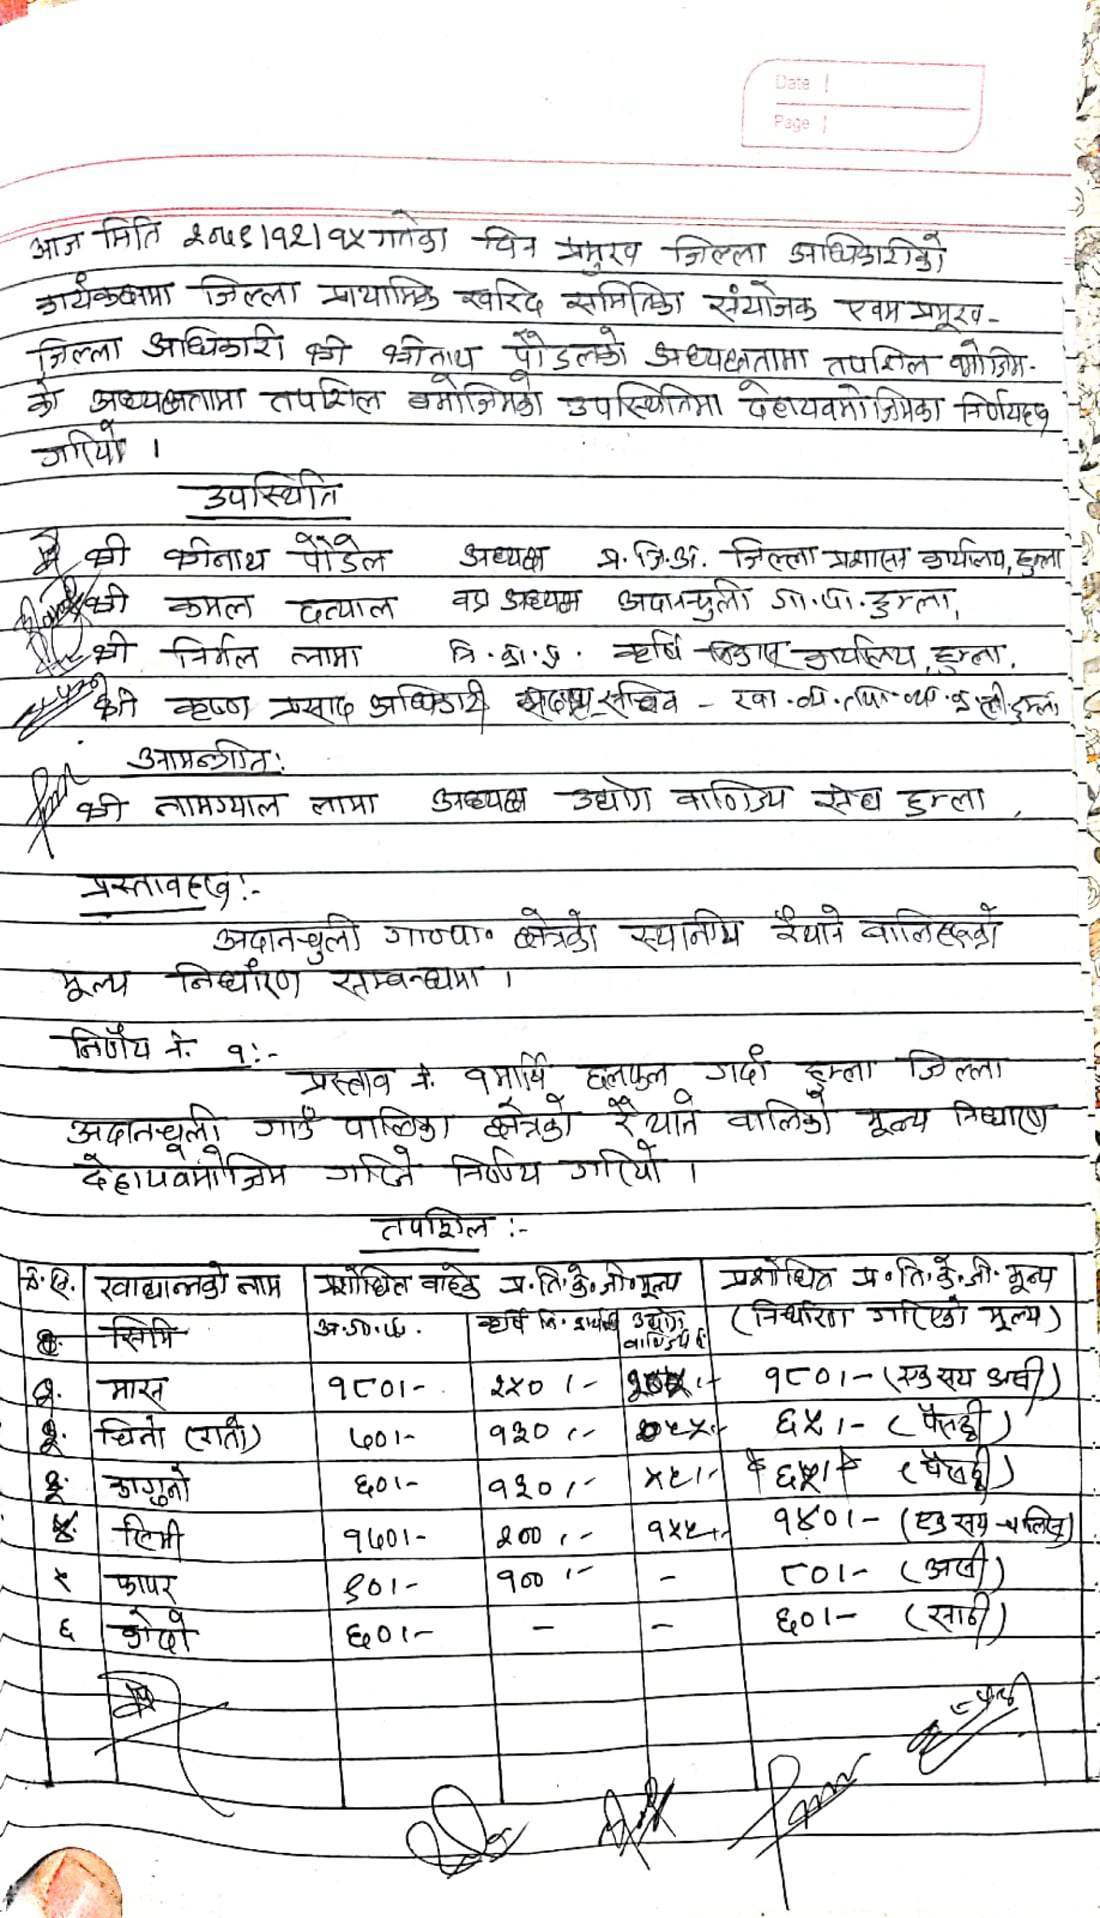 Date
Page
आज मिति २०७६।१२।१५ गतेका दिन प्रमुख जिल्ला अधिकारीको
कार्यकक्षमा जिल्ला प्राथामिक खरिद समितिका संयोजक एवम प्रमूख-
जिल्ला अधिकारी श्री श्रीनाथ पौडेलको अध्यक्षतामा तपशिल बमोजिम-
को अध्यक्षतामा तपशिल बमोजिमको उपस्थितिमा देहायवमोजिमका निर्णयहरु
गरियो ।
उपस्थिति
श्री श्रीनाथ पौडेल अध्यक्ष प्र.जि.अ. जिल्ला प्रशासन कार्यालय, हुम्ला
श्री कमल दत्याल अध्यक्ष अदानचुली गा.पा. हुम्ला,
श्री निर्मल लामा नि.का.प्र. कृषि विकास कार्यालय, हुम्ला.
श्री कृष्ण प्रसाद अधिकारी सदस्य सचिव - खा.व्य.तथा.व्या.क.ली.हुम्ला
आमन्त्रीत:
श्री नामग्याल लामा अध्यक्ष उद्योग वाणिज्य संघ हुम्ला,
प्रस्तावहरु:-
अदानचुली गा०पा० क्षेत्रको स्थानीय रैथाने बालिहरुको
मूल्य निर्धारण सम्बन्धमा ।
निर्णय नं. १:-
प्रस्ताव नं. १ माथि छलफल गर्दा हुम्ला जिल्ला
अदानचूली गाउँ पालिका क्षेत्रको रैथाने वालिको मूल्य निधारण
देहायवमोजिम गरिने निर्णय गरियो ।
तपशिल:-
क्र.सि. खाद्यान्नको नाम प्रशोधित बाहेक प्र.ति.के.जी.मूल्य प्रशोधित प्र.ति.के.जी.मूल्य
सिमि अ.गा.पा. कृषि वि. कार्यालय उद्योग वाणिज्य सं (निर्धारित गरिएको मूल्य)
१. मास १८०।- २५०।- १८०।- (एक सय असी)
२. चिनो (रातो) ७०।- १३०।- ६५।- (पैसठ्ठी)
३. कागुनो ६०।- १३०।- ४५।- ६५।- (पैसठ्ठी)
४. सिमी १७०।- २००।- १५५।- १४०।- (एक सय चालिस)
५ फापर ९०।- १००।- - ८०।- (असी)
६ कोदो ६०।- - - ६०।- (साठी)